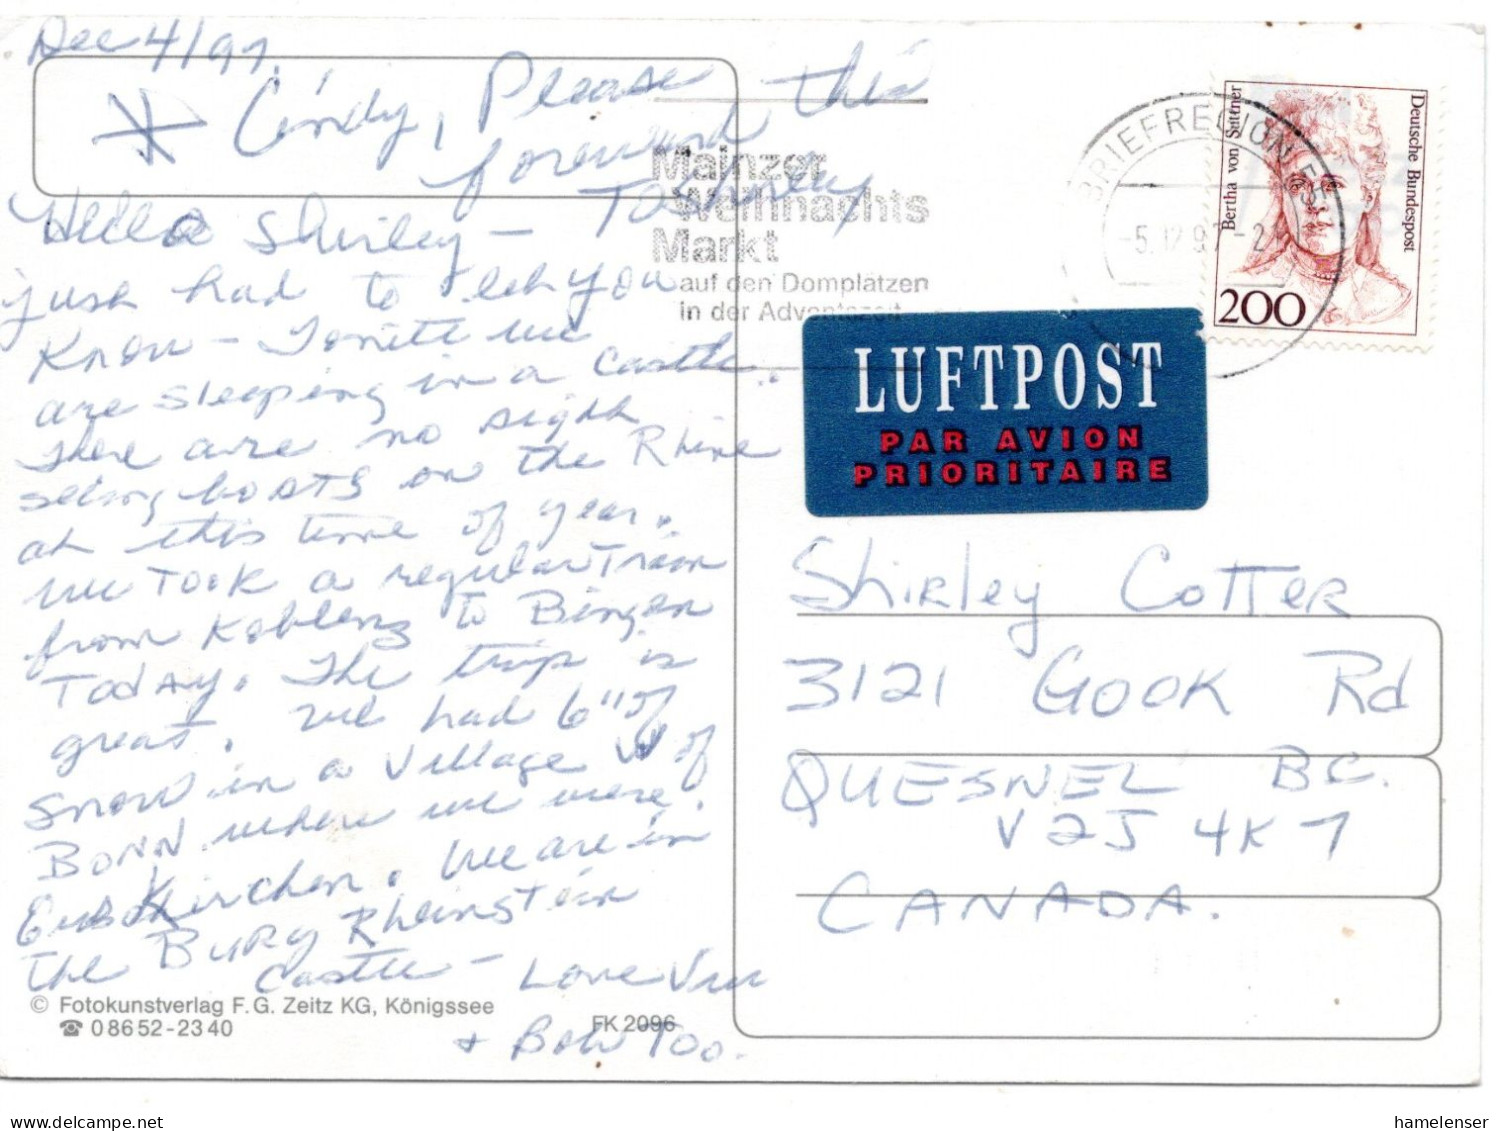 Dec 4/97
* Cindy, Please
forward this
To Shirley
Hello Shirley —
just had to let you
Know — Tonite we
are sleeping in a castle.
There are no sight
seeing boats on the Rhine
at this time of year.
We Took a regular Train
from Koblenz to Bingen
Today. The trip is
great. We had 6" of
snow in a Village W of
BONN where we were.
Euskirchen. We are in
the Burg Rheinstein
Castle — Love
+ Bob Too.
© Fotokunstverlag F. G. Zeitz KG, Königssee
☎ 0 86 52 - 23 40
FK 2096
Mainzer
Weihnachts
Markt
auf den Domplätzen
in der Adventszeit
BRIEFREGION 55
-5.12.97-21
Bertha von Suttner
Deutsche Bundespost
200
LUFTPOST
PAR AVION
PRIORITAIRE
Shirley Cotter
3121 Gook Rd
QUESNEL BC.
V2J 4K7
CANADA.
hamelenser